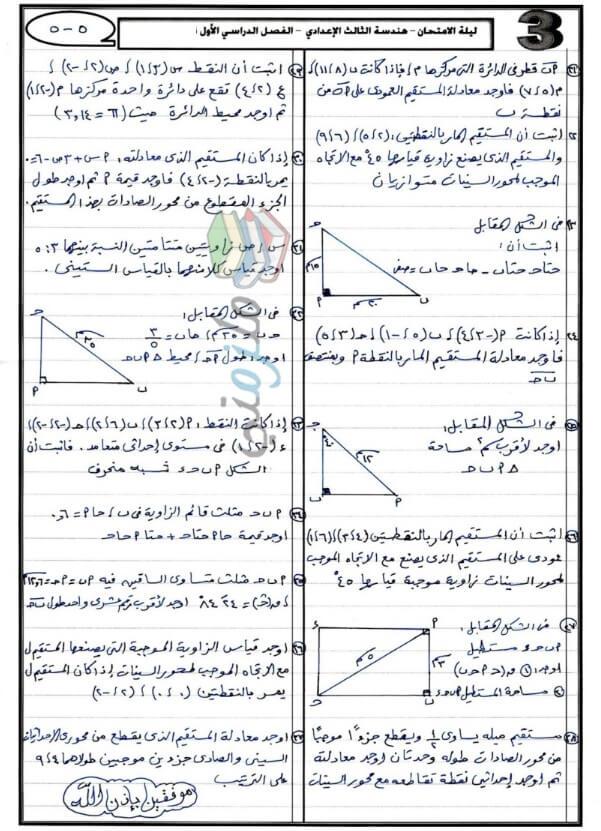 ليلة الامتحان - هندسة الثالث الإعدادي - الفصل الدراسي الأول
3
٥ - ٥
٢١ P ب قطر في الدائرة التي مركزها م فإذا كانت ب (٨، ١١)
م (٥، ٧) فأوجد معادلة المستقيم العمودى على P ب من
نقطة ب
٢٢ اثبت أن المستقيم المار بالنقطتين: (٢، ٥) (٦، ٩)
والمستقيم الذى يصنع زاوية قياسها ٤٥° مع الاتجاه
الموجب لمحور السينات متوازيان
٢٣ فى الشكل المقابل
اثبت أن:
حتا ح حتا ب - حا ح حا ب = صفر
ح
١٥ سم
P
٢٠ سم
ب
٢٤ إذا كانت P (-٢، ٤) ب (٥، -١) ح (٣، ٥)
فأوجد معادلة المستقيم المار بالنقطة P وبمنتصف
ب ح
٢٥ فى الشكل المقابل:
اوجد لأقرب سم٢ مساحة
Δ P ب ح
ح
١٢ سم
ب
P
٢٦ اثبت أن المستقيم المار بالنقطتين (٤، ٣) (٦، ١)
عمودى على المستقيم الذى يصنع مع الاتجاه الموجب
لمحور السينات زاوية موجبة قياسها ٤٥°
٢٧ فى الشكل المقابل:
P ب ح ء مستطيل
اوجد: ١ ق (ح P ب)
٢ مساحة المستطيل P ب ح ء
ء
P
٥ سم
٣ سم
ح
ب
٢٨ مستقيم ميله يساوى ١/٢ ويقطع جزءًا موجبًا
من محور الصادات طوله وحدتان أوجد معادلته
ثم أوجد إحداثيى نقطة تقاطعه مع محور السينات
٢٩ اثبت أن النقط س (٣، ١) ص (٢، -٢)
ع (٢، ٤) تقع على دائرة واحدة مركزها م (-٢، ١)
ثم اوجد محيط الدائرة حيث (π = ٣,١٤)
٣٠ إذا كان المستقيم الذى معادلته: P س + ٣ ص - ٦ = ٠
يمر بالنقطة (-٢، ٤) فأوجد قيمة P ثم أوجد طول
الجزء المقطوع من محور الصادات بهذا المستقيم.
٣١ س، ص زاويتين متتامتين النسبة بينهما ٣ : ٥
اوجد قياس كلا منهما بالقياس الستينى.
٣٢ فى الشكل المقابل:
ح ب = ٢٥ سم، حا ب = ٣/٥
اوجد طول P ح، محيط Δ P ب ح
ح
٢٥ سم
P
ب
٣٣ إذا كانت النقط: P (٣، ٢) ب (٦، ٢) ح (-٢، -٢)
ء (-٢، ١) فى مستوى إحداثى متعامد. فاثبت أن
الشكل P ب ح ء شبه منحرف
٣٤ P ب ح مثلث قائم الزاوية فى ب، حا P = ٠,٦
اوجد قيمة حا P حتا ح + حتا P حا ح
٣٥ P ب ح مثلث متساوى الساقين فيه P ب = P ح = ١٢,٦ سم
اوجد لأقرب رقم عشرى واحد طول ب ح
٣٦ اوجد قياس الزاوية الموجبة التى يصنعها المستقيم ل
مع الاتجاه الموجب لمحور السينات إذا كان المستقيم ل
يمر بالنقطتين (٠، ٠)، (٢، -٢)
٣٧ اوجد معادلة المستقيم الذى يقطع من محورى الإحداثيات
السينى والصادى جزءين موجبين طولاهما ٤، ٩
على الترتيب
موفقين بإذن الله
ملزمتي